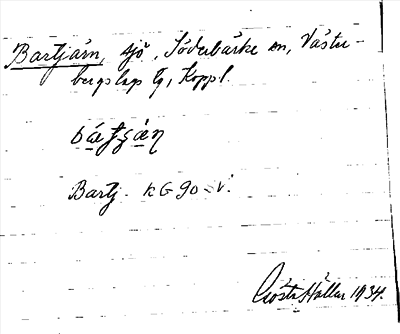 Bartjärn, sjö, Söderbärke sn, Väster-
bergslags tg, Koppl.
Bartj. KG 90 v.
Gösta Hallur 1934.